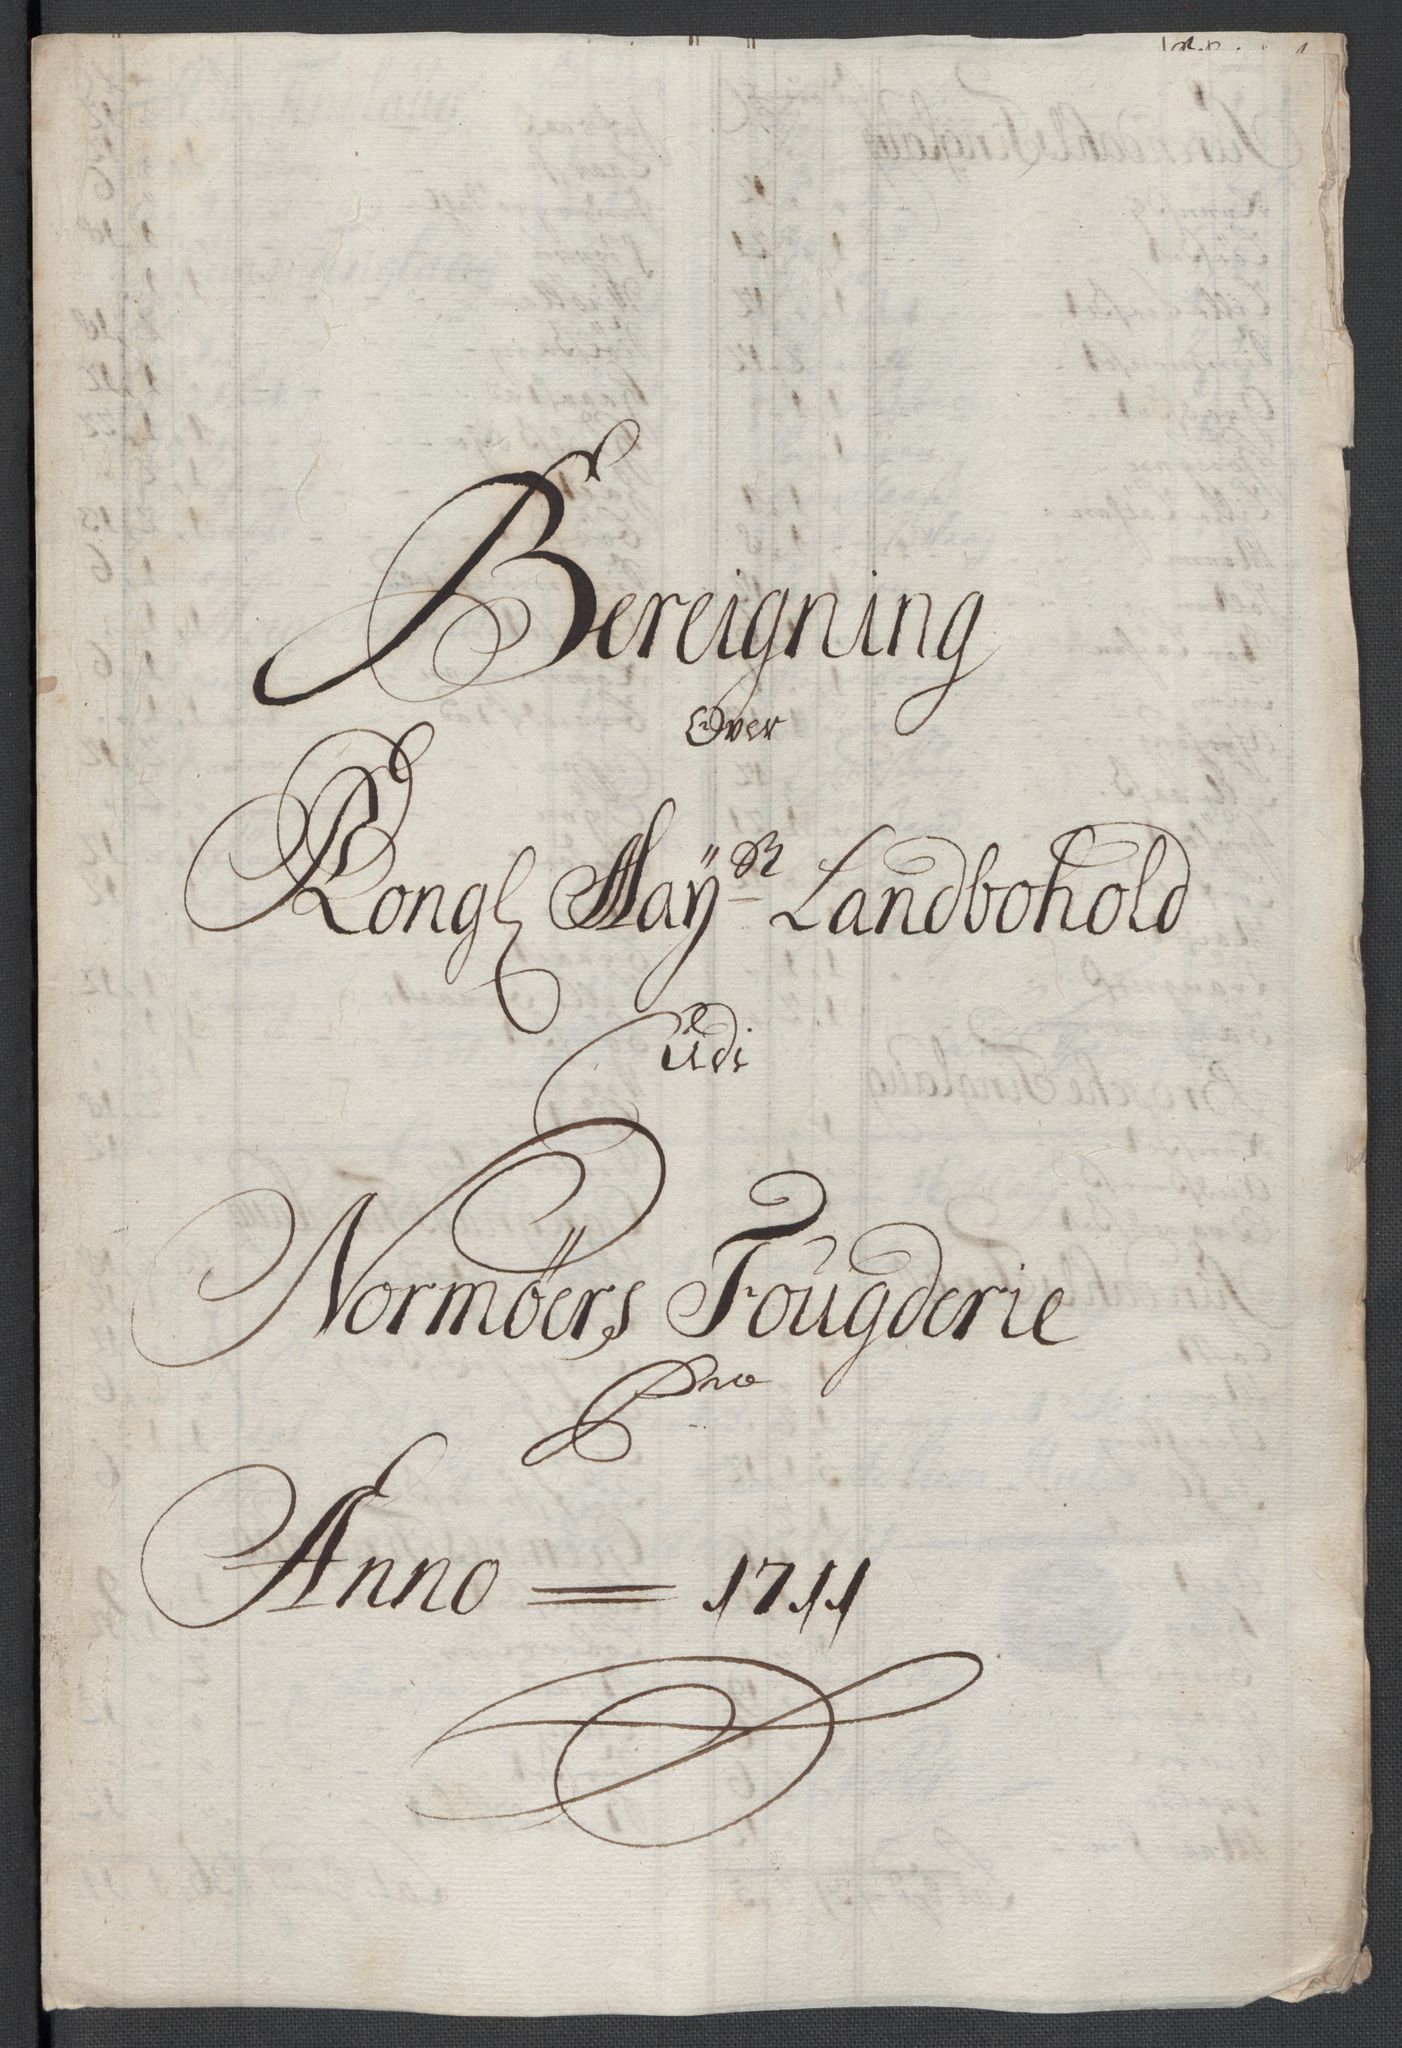 Bereigning
Over
Kongl Maÿtz Landbohold
Udi
Normöers Fougderie
Pro
Anno = 1711